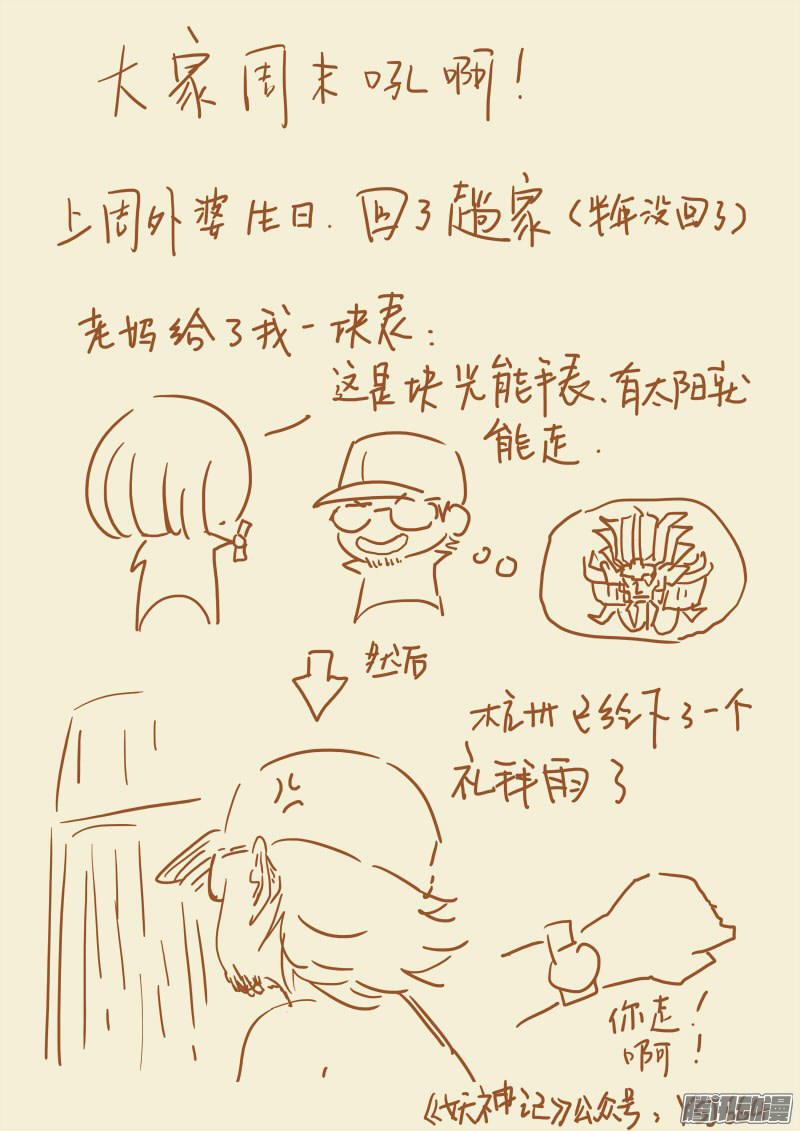 大家周末吼啊！
上周外婆生日．回了趟家（半年没回了）
老妈给了我一块表：
这是块光能手表、有太阳就
能走．
然后
杭州已经下了一个
礼拜雨了
你走！
啊！
《妖神记》公众号：
腾讯动漫